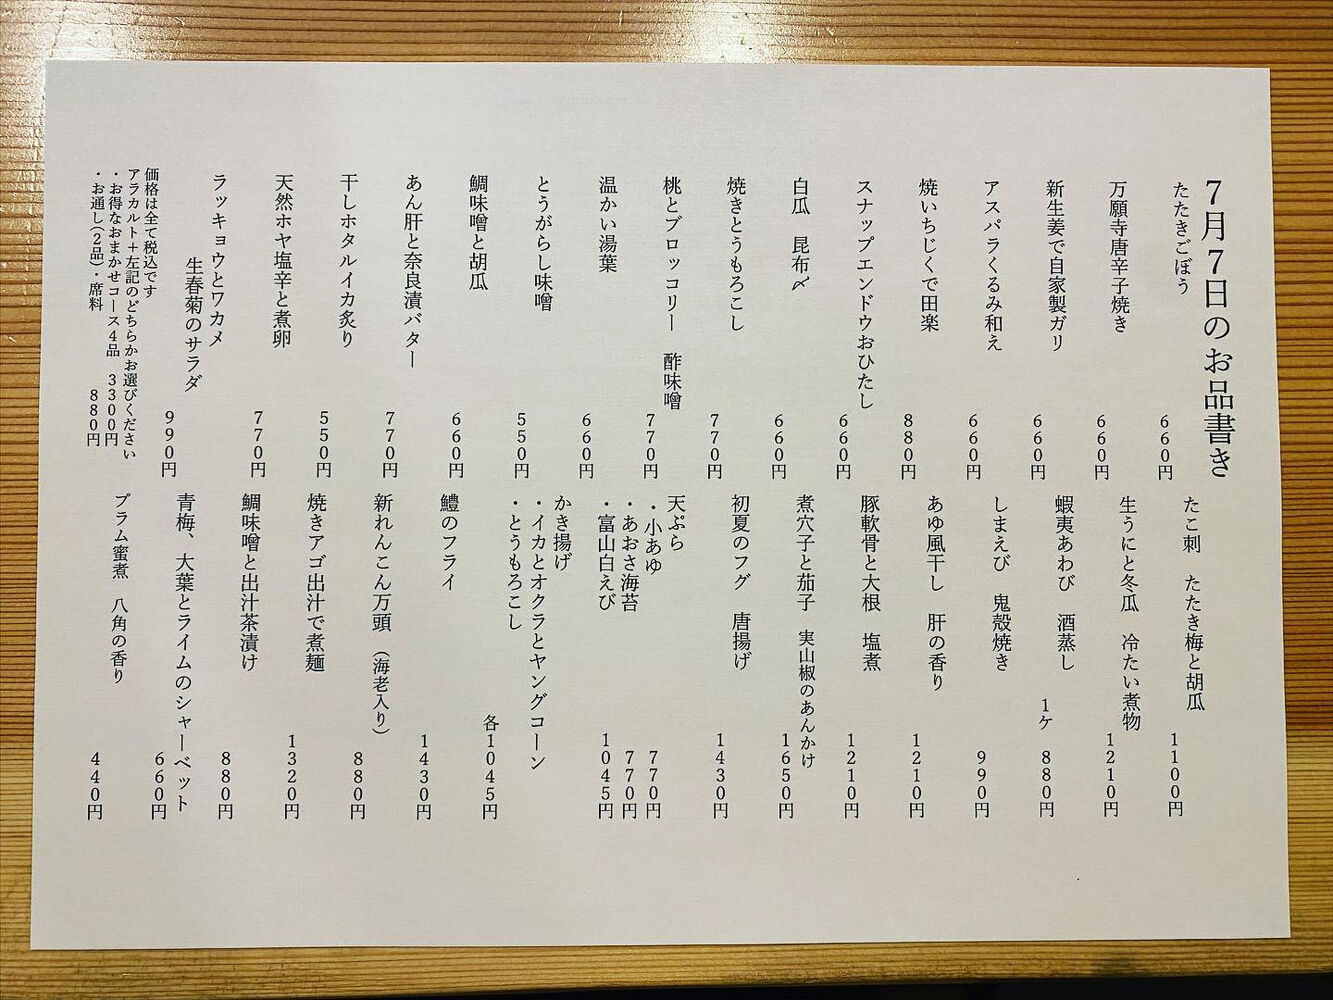 7月7日のお品書き
たたきごぼう 660円
万願寺唐辛子焼き 660円
新生姜で自家製ガリ 660円
アスパラくるみ和え 660円
焼いちじくで田楽 880円
スナップエンドウおひたし 660円
白瓜 昆布〆 660円
焼きとうもろこし 770円
桃とブロッコリー 酢味噌 770円
温かい湯葉 660円
とうがらし味噌 550円
鯛味噌と胡瓜 660円
あん肝と奈良漬バター 770円
干しホタルイカ炙り 550円
天然ホヤ塩辛と煮卵 770円
ラッキョウとワカメ
生春菊のサラダ 990円
価格は全て税込です
アラカルト+左記のどちらかお選びください
・お得なおまかせコース4品 3300円
・お通し(2品)・席料 880円
たこ刺 たたき梅と胡瓜 1100円
生うにと冬瓜 冷たい煮物 1210円
蝦夷あわび 酒蒸し 1ケ 880円
しまえび 鬼殻焼き 990円
あゆ風干し 肝の香り 1210円
豚軟骨と大根 塩煮 1210円
煮穴子と茄子 実山椒のあんかけ 1650円
初夏のフグ 唐揚げ 1430円
天ぷら
・小あゆ 770円
・あおさ海苔 770円
・富山白えび 1045円
かき揚げ
・イカとオクラとヤングコーン
・とうもろこし 各1045円
鱧のフライ 1430円
新れんこん万頭(海老入り) 880円
焼きアゴ出汁で煮麺 1320円
鯛味噌と出汁茶漬け 880円
青梅、大葉とライムのシャーベット 660円
プラム蜜煮 八角の香り 440円